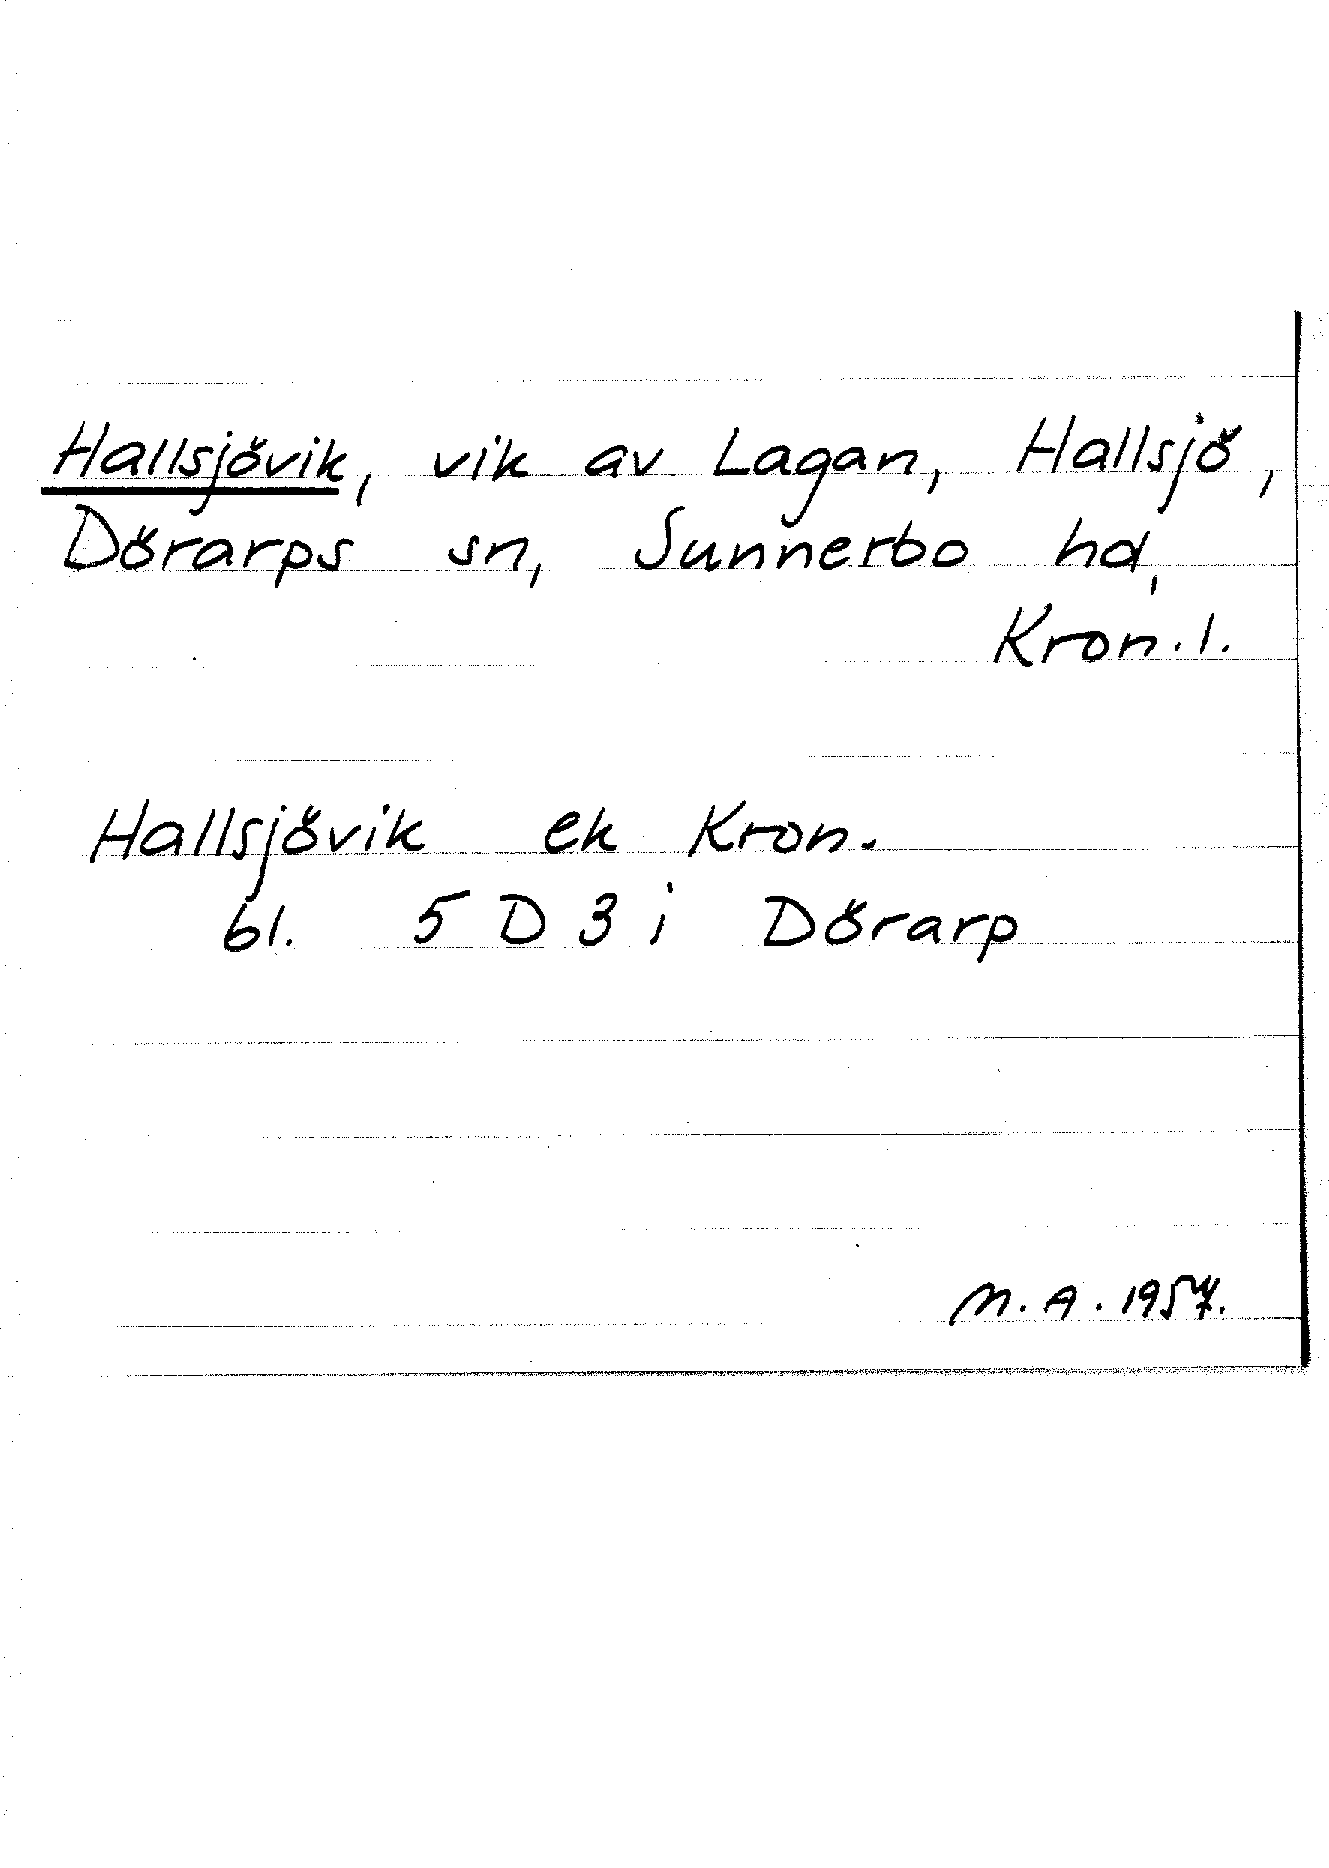 Hallsjövik, vik av Lagan, Hallsjö,
Dörarps sn, Sunnerbo hd,
Kron. l.
Hallsjövik ek Kron.
bl. 5 D 3 i Dörarp
M. A. 1957.